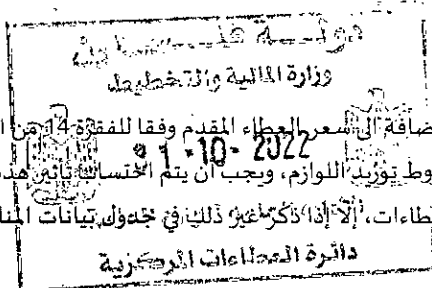 دولة فلسطين
وزارة المالية والتخطيط
ضافة الى سعر العطاء المقدم وفقا للفقرة 14 من ا
01-10-2022
وط توريد اللوازم، ويجب ان يتم احتساب تأثير هذه
طاءات، إلا إذا ذكر غير ذلك في جدول بيانات المنا
دائرة العطاءات المركزية